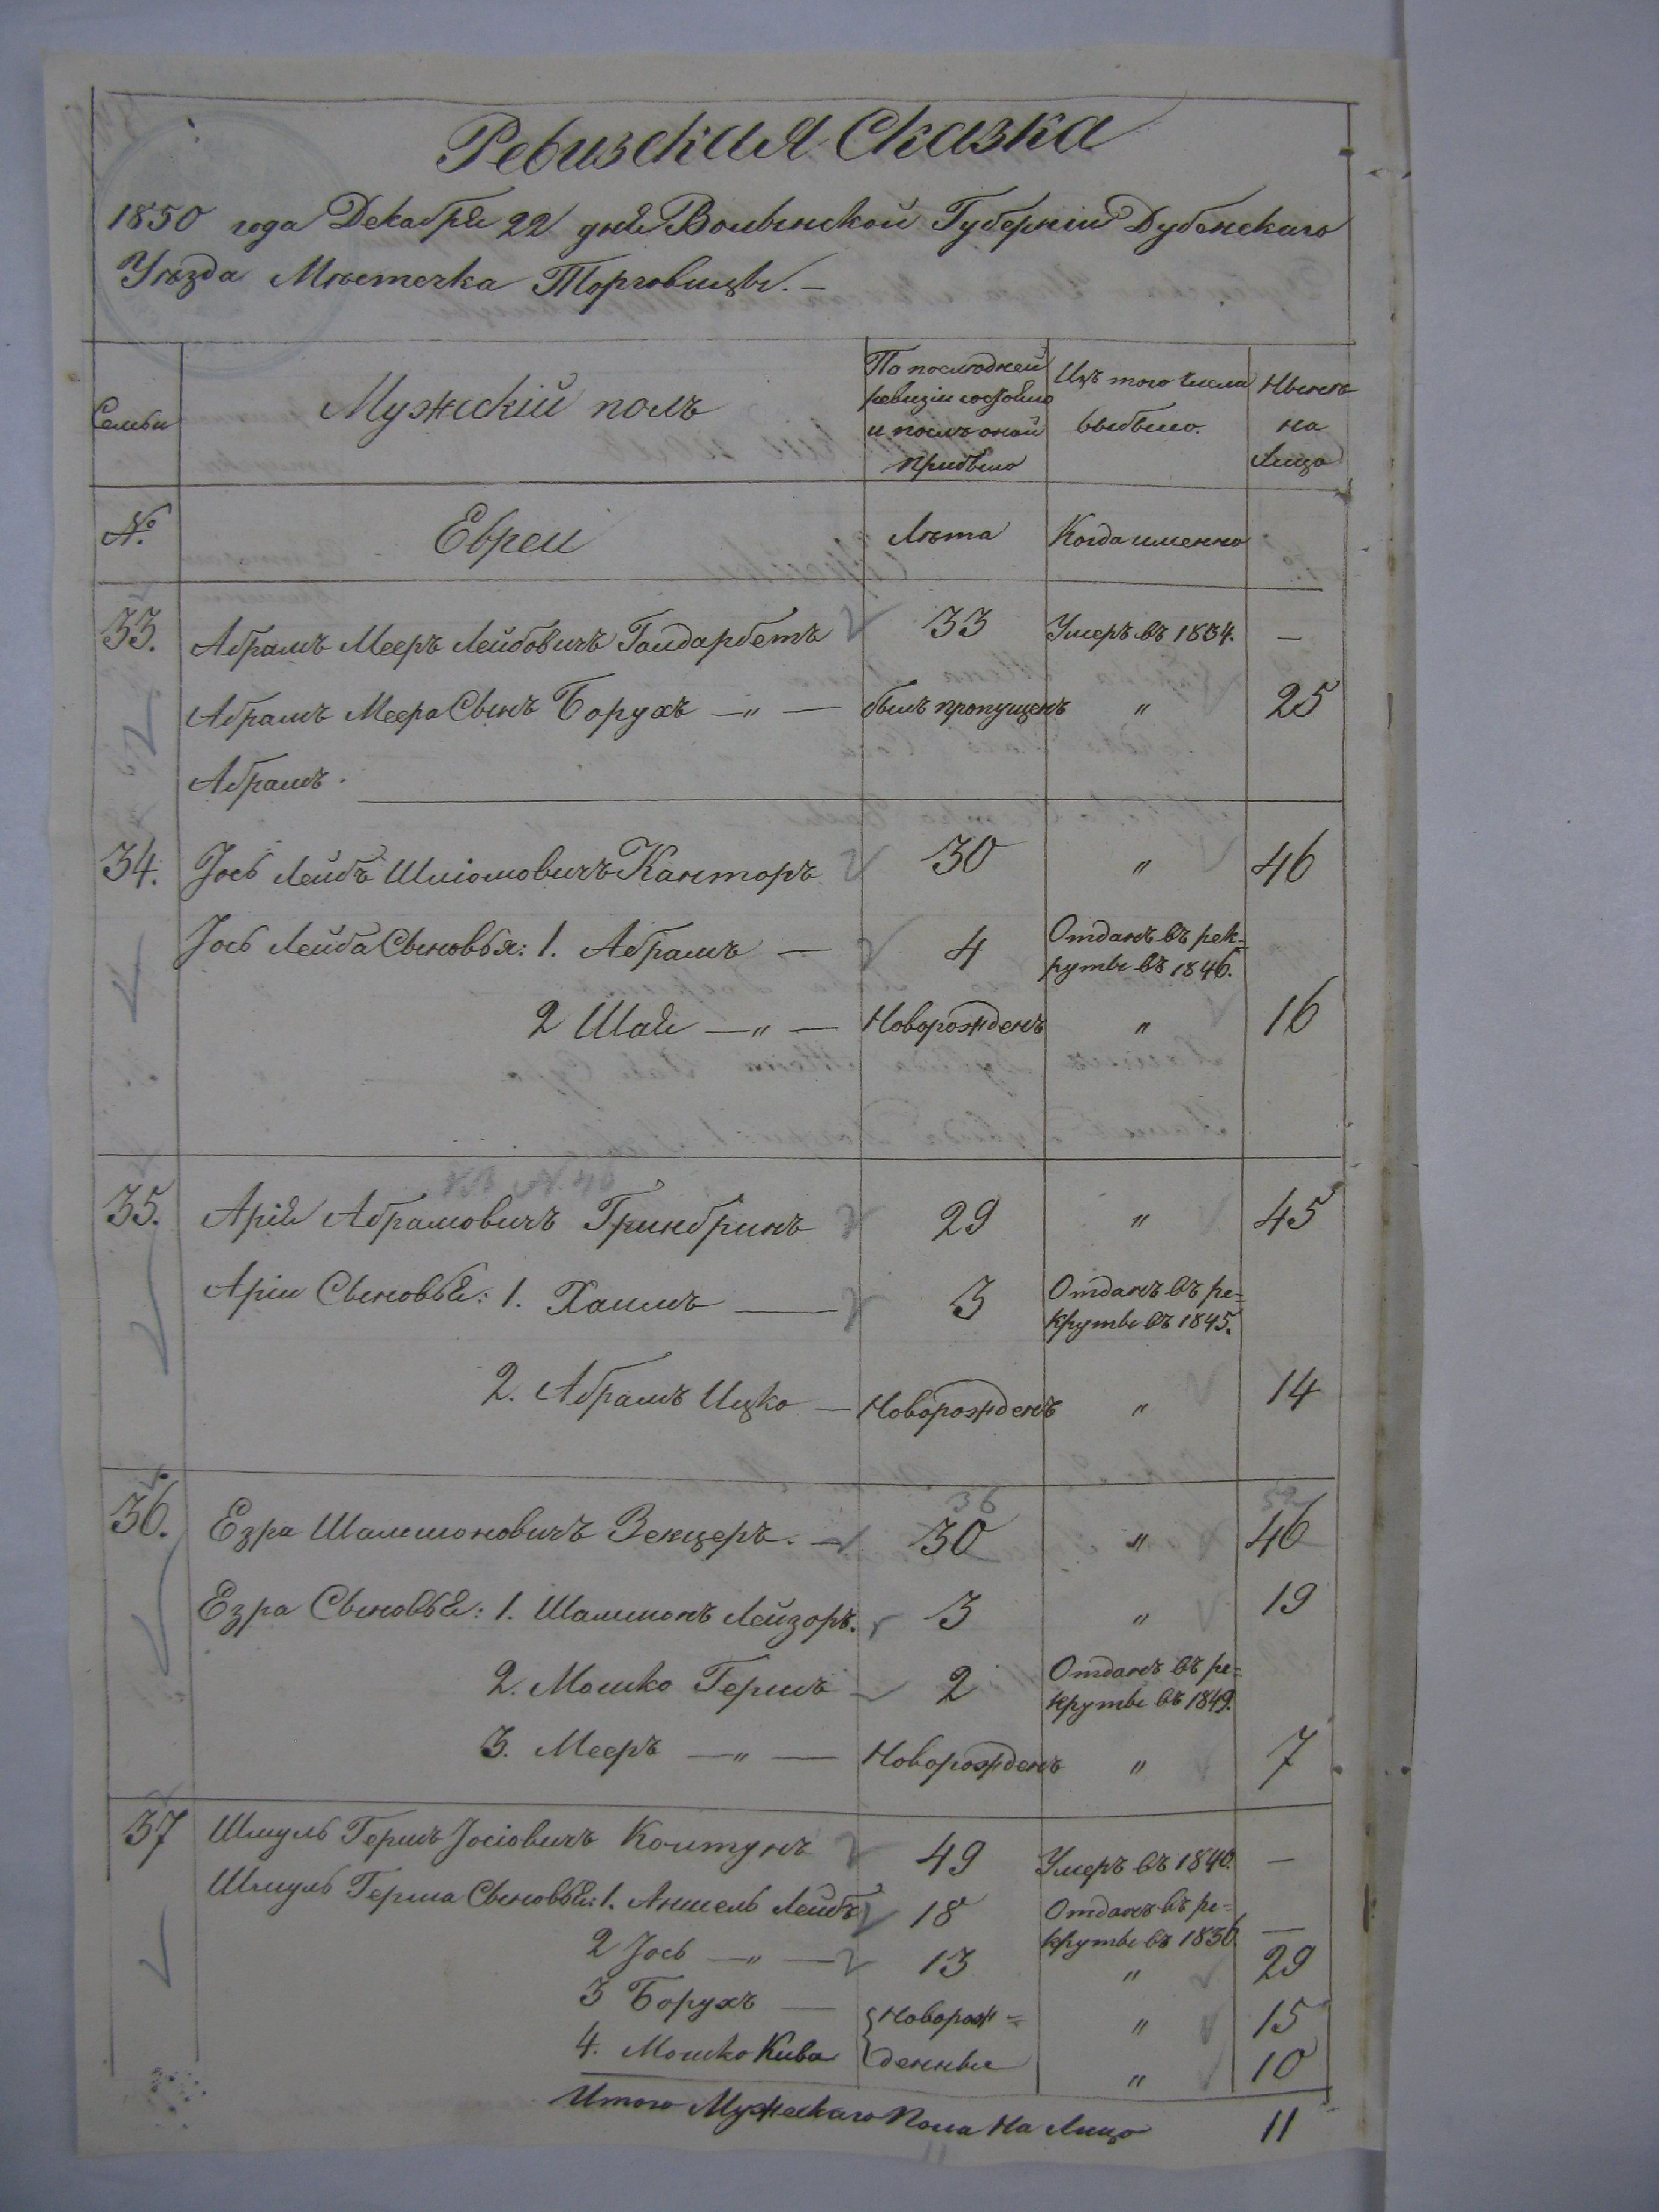 Ревизская Сказка
1850 года Декабря 22 дня Волынской Губерніи Дубенскаго
Уѣзда Мѣстечка Торговицы. —
Семьи
Мужескій полъ
По послѣдней ревизіи состояло и послѣ оной прибыло
Изъ того числа выбыло.
Нынѣ на лицо
№
Евреи
Лѣта
Когда именно
33. Абрамъ Мееръ Лейбовичъ Галдарбетъ 33 Умеръ въ 1834. —
Абрамъ Меера Сынъ Борухъ — " — былъ пропущенъ " 25
Абрамъ.
34. Іось Лейбъ Шліомовичъ Канторъ 30 " 46
Іось Лейба Сыновья: 1. Абрамъ — 4 Отданъ въ рек-
руты въ 1846.
2 Шая — " — Новорожденъ " 16
35. Арія Абрамовичъ Гринбринъ 29 " 45
Аріи Сыновья: 1. Хаимъ — 3 Отданъ въ ре-
круты въ 1845.
2. Абрамъ Ицко — Новорожденъ " 14
36. Езра Шаммоновичъ Зекцеръ. — 30 " 46
Езра Сыновья: 1. Шаммонъ Лейзоръ. 3 " 19
2. Мошко Гершъ — 2 Отданъ въ ре-
круты въ 1849.
3. Мееръ — " — Новорожденъ " 7
37 Шмуль Гершъ Іосіовичъ Колтунъ 49 Умеръ въ 1840. —
Шмуль Герша Сыновья: 1. Аншель Лейбъ 18 Отданъ въ ре-
круты въ 1836. —
2 Іось — " — 13 " 29
3 Борухъ — Новорож- " 15
4. Мошко Кива денные " 10
Итого Мужескаго пола на лицо 11